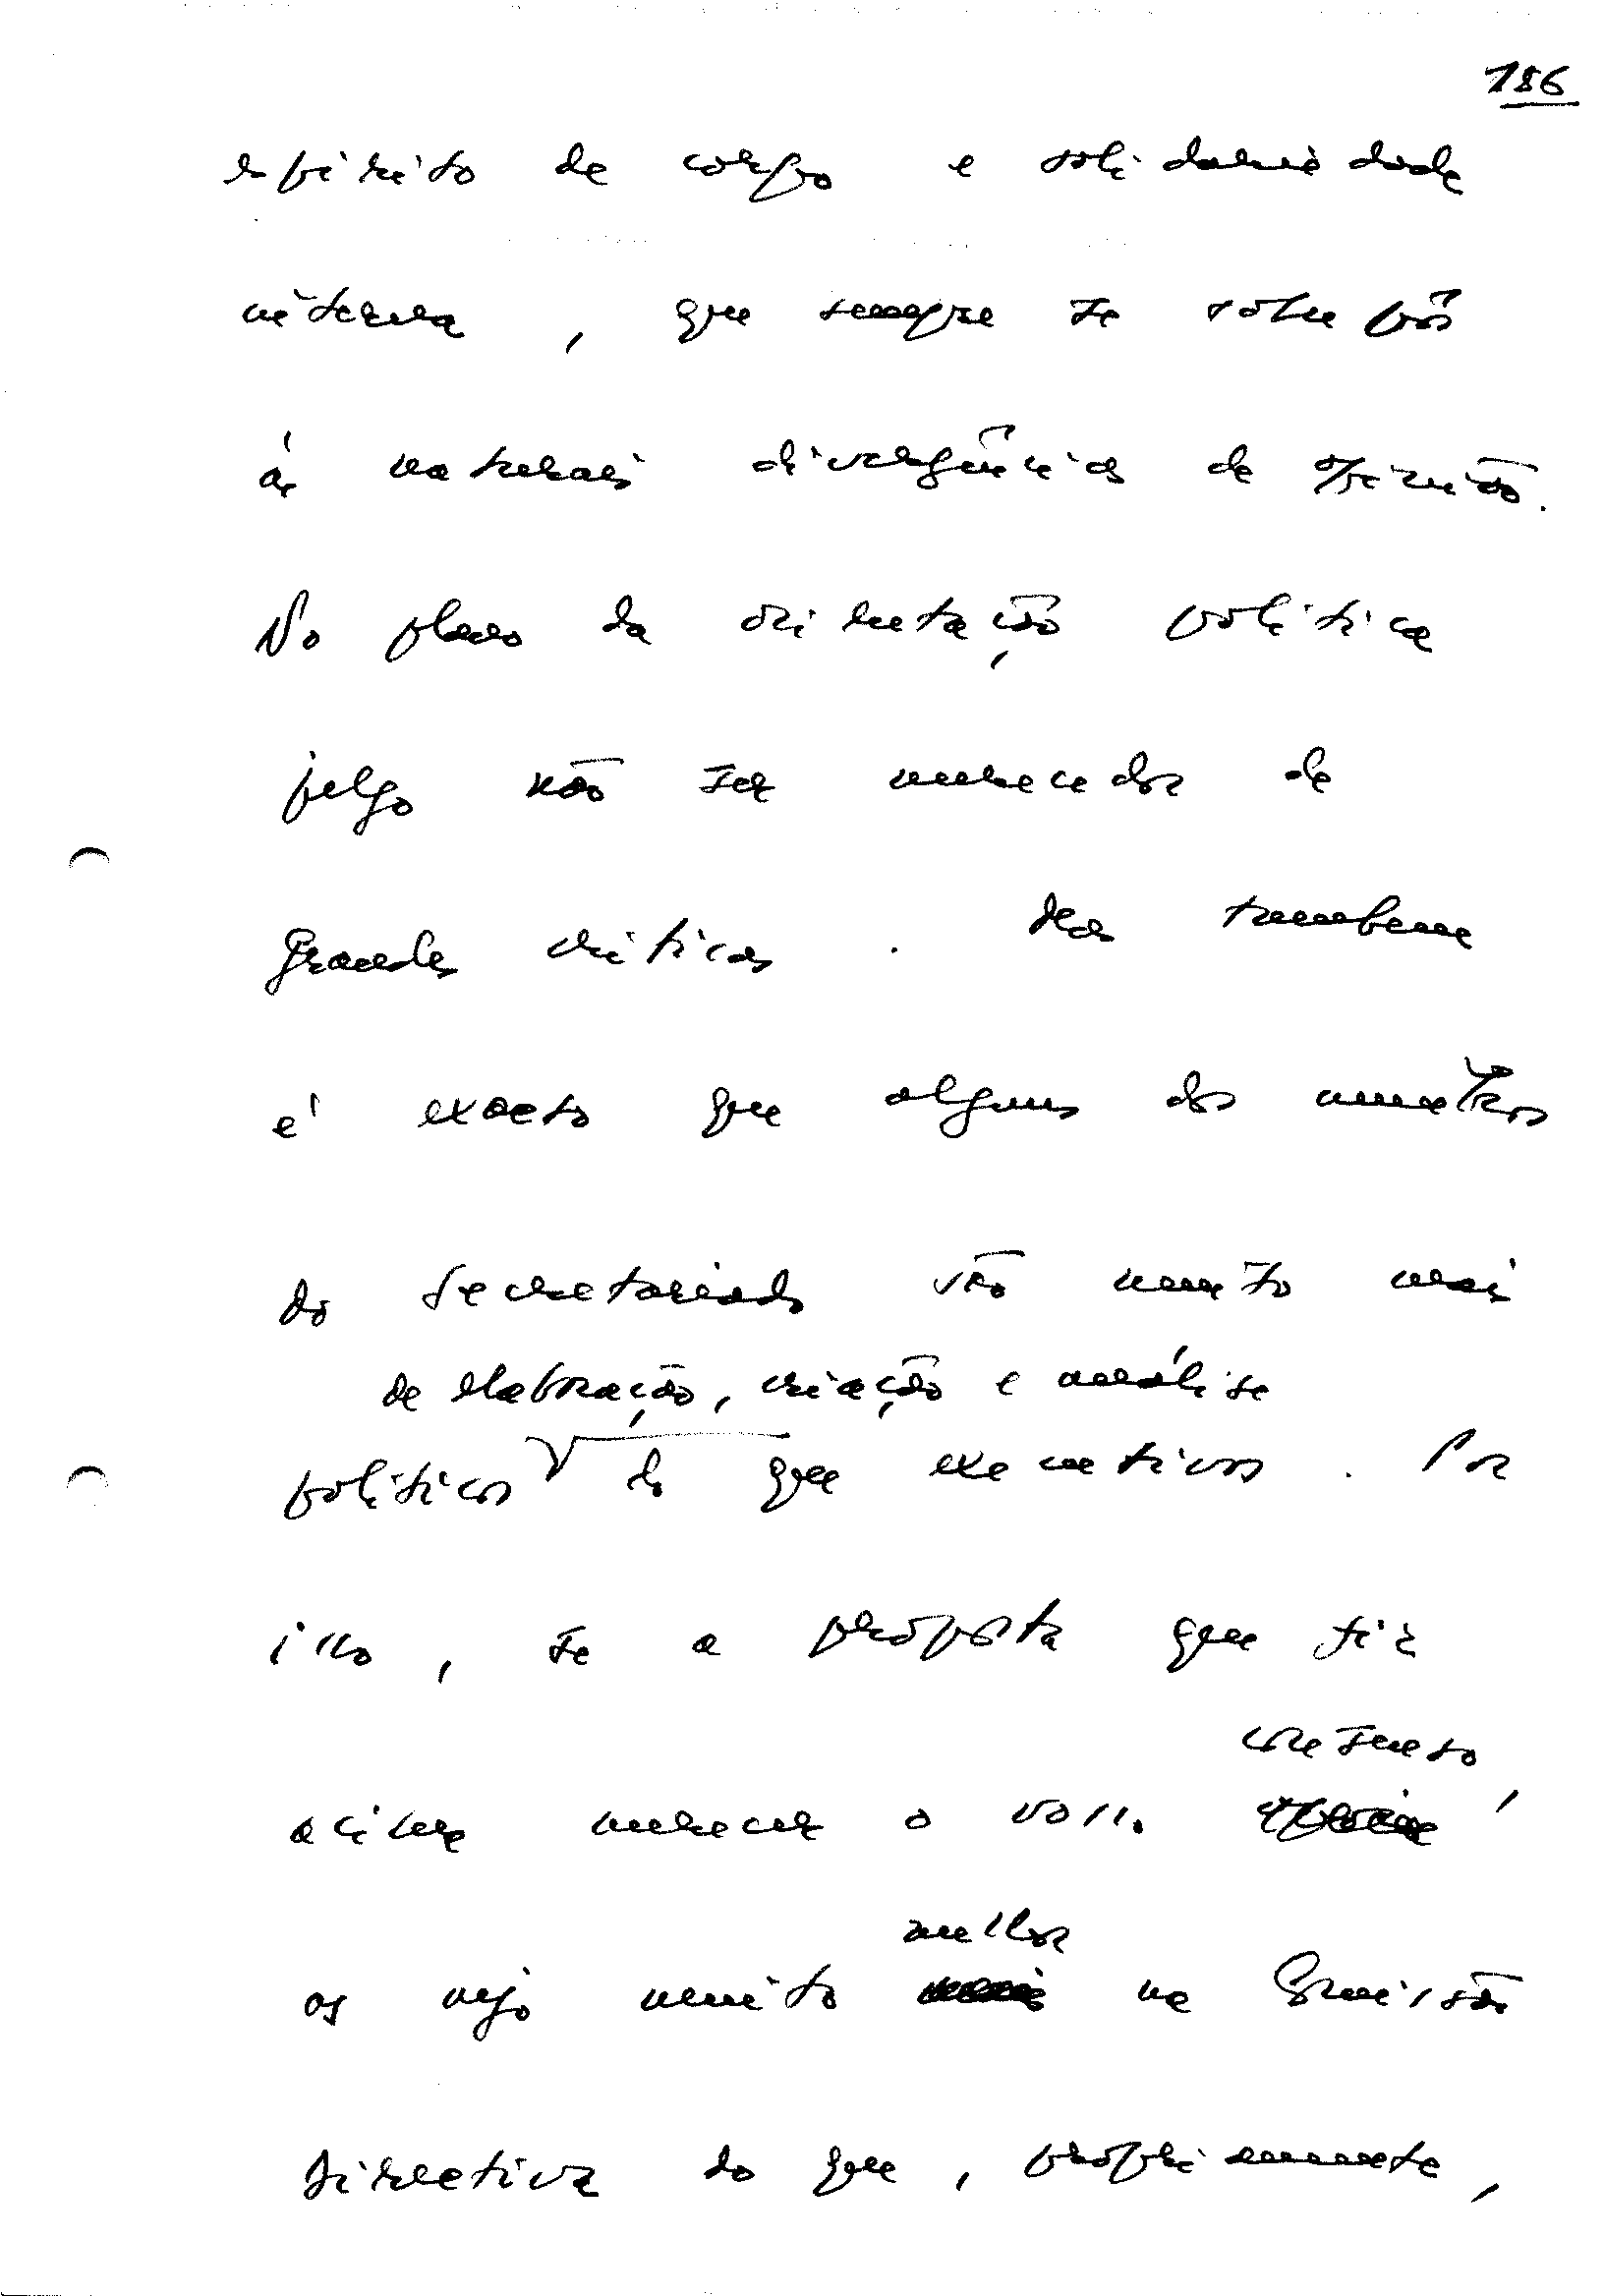 186
espírito de corpo e solidariedade
interna, que sempre se sobrepôs
às naturais divergências de opinião.
No plano da orientação política
julgo não ser merecedor de
grandes críticas. Mas também
é exacto que alguns dos membros
do Secretariado são muito mais
de elaboração, criação e análise
políticos do que executivos. Por
isso, se a proposta que fiz
consenso,
acima merecer o voss.
melhor
os vejo muito na Comissão
Directiva do que, propriamente,